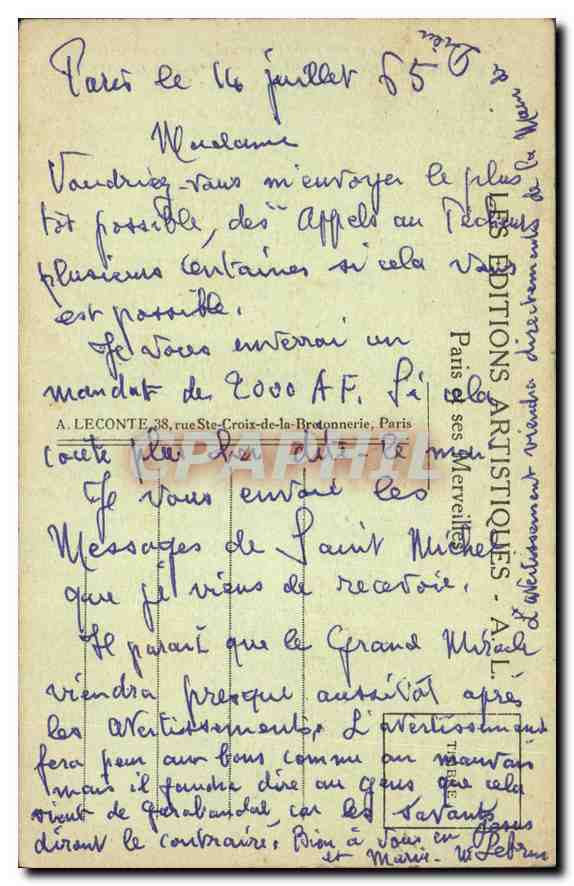 Paris le 14 juillet 65
Madame
Voudriez-vous m'envoyer le plus
tôt possible, des "Appels au
plusieurs centaines si cela vous
est possible.
Je vous enverrai un
mandat de 2000 AF. Si cela
coute plus dite-le moi
Je vous envoie les
Messages de Saint Michel
que je viens de recevoir.
Il parait que le Grand Miracle
viendra presque aussitôt après
les avertissements. L'avertissement
fera peur aux bons comme au mauvais
mais il faudra dire au gens que cela
vient de Garabandal, car les savants
diront le contraire. Bien à vous en Jesus
et Marie. Lebrun
L'avertissement viendra directement de la Main de Dieu
LES EDITIONS ARTISTIQUES - A. L.
Paris et ses Merveilles
A. LECONTE, 38, rue Ste-Croix-de-la-Bretonnerie, Paris
TIMBRE
CPAPHIL